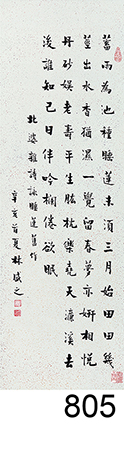 蓄雨為池種睡蓮未須三月始田田幾
莖出水香猶濕一覺留春夢亦妍相悅
丹砂娛老壽平生肱枕樂堯天濂溪去
後誰知己日伴吟榻倦欲眠
北婆雜詩詠睡蓮舊作
辛亥首夏林咸之
805